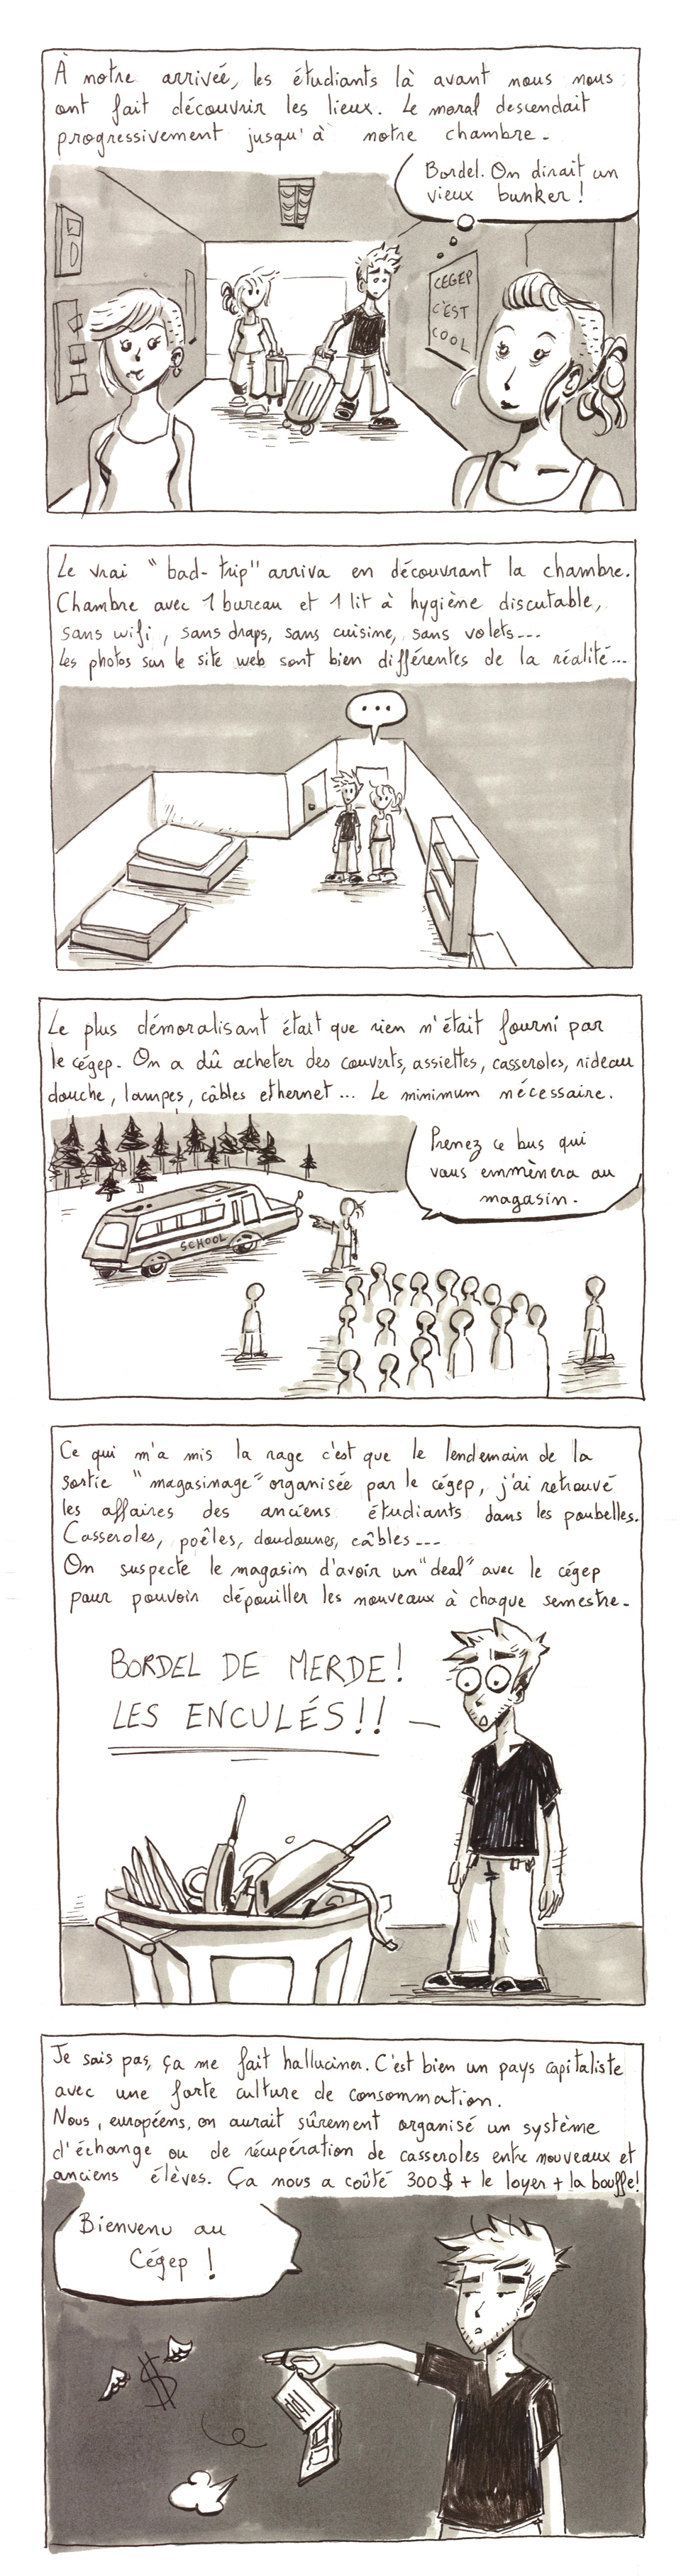 À notre arrivée, les étudiants là avant nous nous
ont fait découvrir les lieux. Le moral descendait
progressivement jusqu'à notre chambre.
Bordel. On dirait un
vieux bunker !
CEGEP
C'EST
COOL
Le vrai "bad-trip" arriva en découvrant la chambre.
Chambre avec 1 bureau et 1 lit à hygiène discutable,
sans wifi, sans draps, sans cuisine, sans volets...
Les photos sur le site web sont bien différentes de la réalité...
...
Le plus démoralisant était que rien n'était fourni par
le cégep. On a dû acheter des couverts, assiettes, casseroles, rideau
douche, lampes, câbles ethernet... Le minimum nécessaire.
Prenez ce bus qui
vous emmènera au
magasin.
SCHOOL
Ce qui m'a mis la rage c'est que le lendemain de la
sortie "magasinage" organisée par le cégep, j'ai retrouvé
les affaires des anciens étudiants dans les poubelles.
Casseroles, poêles, doudounes, câbles...
On suspecte le magasin d'avoir un "deal" avec le cégep
pour pouvoir dépouiller les nouveaux à chaque semestre.
BORDEL DE MERDE !
LES ENCULÉS !!
Je sais pas, ça me fait halluciner. C'est bien un pays capitaliste
avec une forte culture de consommation.
Nous, européens, on aurait sûrement organisé un système
d'échange ou de récupération de casseroles entre nouveaux et
anciens élèves. Ça nous a coûté 300$ + le loyer + la bouffe!
Bienvenu au
Cégep !
$